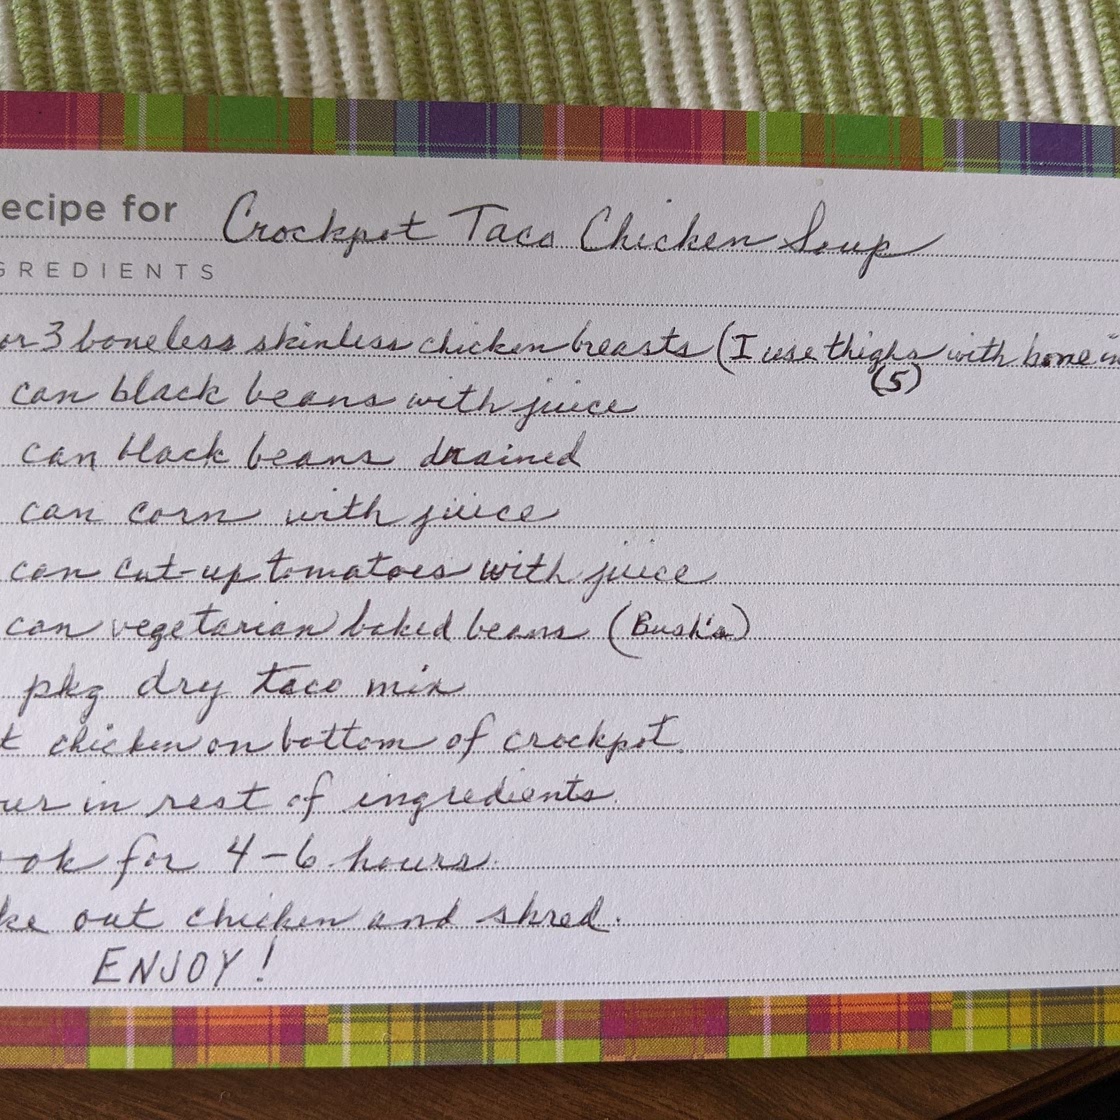 ecipe for Crockpot Taco Chicken Soup
GREDIENTS
or 3 boneless skinless chicken breasts (I use thighs with bone in
(5)
can black beans with juice
can black beans drained
can corn with juice
can cut-up tomatoes with juice
can vegetarian baked beans (Bush's)
pkg dry taco mix
t chicken on bottom of crockpot.
ur in rest of ingredients.
ook for 4-6 hours.
ke out chicken and shred.
ENJOY!